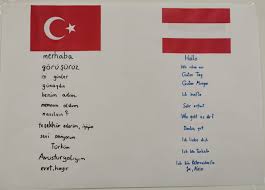 merhaba
görüşürüz
iyi günler
günaydın
benim adım
memnun oldum
nasılsın?
teşekkür ederim, iyiyim
seni seviyorum
Türküm
Avusturyalıyım
evet, hayır
Hallo
Guten Tag
Guten Morgen
Ich heiße
Sehr erfreut
Wie geht es dir?
Danke, gut
Ich liebe dich
Ich bin
Ja, Nein